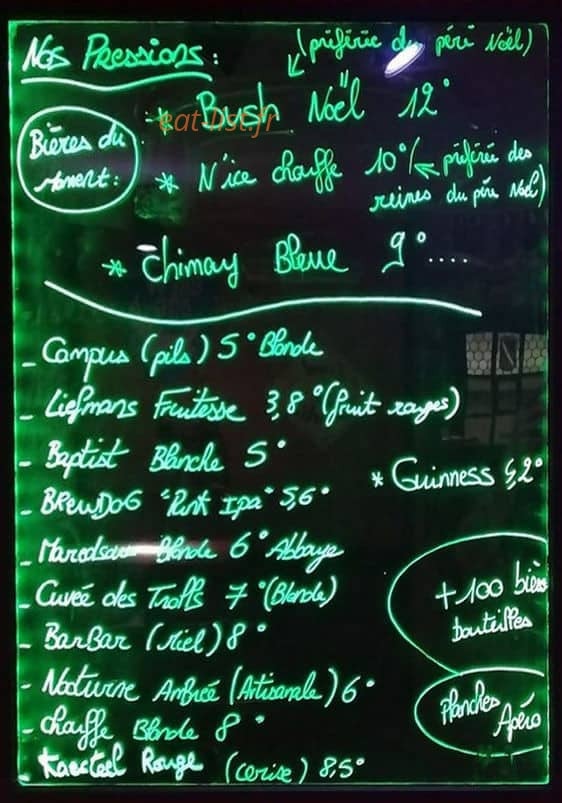 (préférée du père Noël)
Nos Pressions :
* Bush Noël 12°
eat-list.fr
Bières du
Moment :
* N'ice chouffe 10° (préférée des
reines du père Noël)
* Chimay Bleue 9°....
- Campus (pils) 5° Blonde
- Liefmans Fruitesse 3,8° (fruit rouges)
- Baptist Blanche 5°
* Guinness 4,2°
- BREWDOG "Punk ipa" 5,6°
- Maredsous Blonde 6° Abbaye
- Cuvée des Trolls 7° (Blonde)
+ 100 bières
bouteilles
- BarBar (Miel) 8°
- Nocturne Ambrée (Artisanale) 6°
Planches
Apéro
- chouffe Blonde 8°
- Kasteel Rouge (cerise) 8,5°